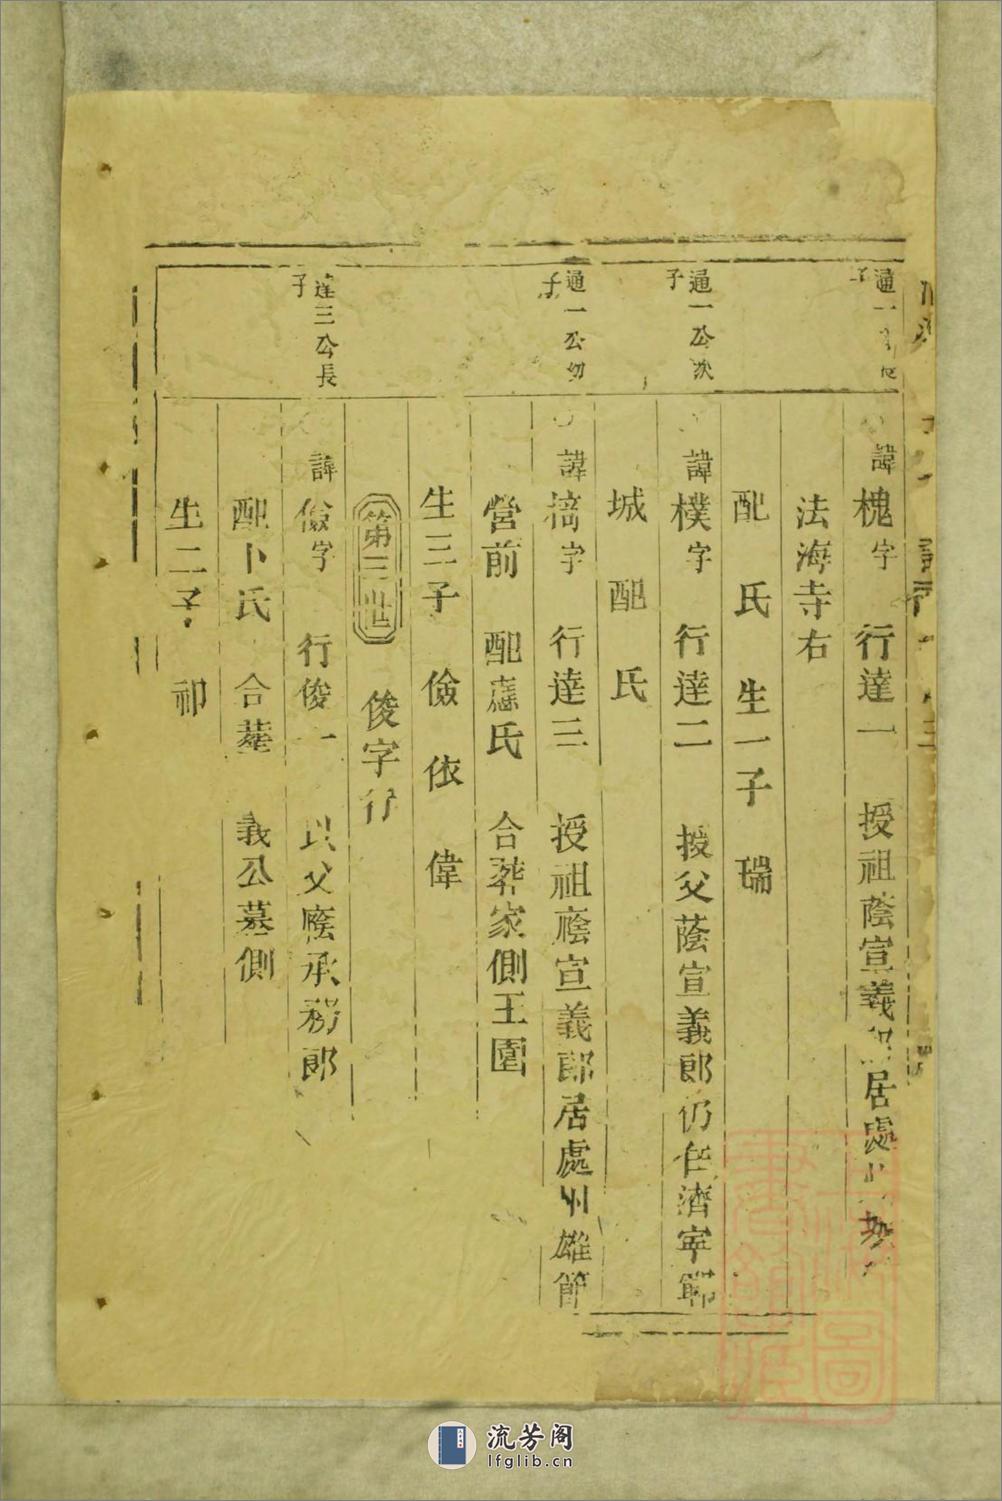 通一公
子
諱槐字 行達一 授祖蔭宣義 居處
法海寺右
配 氏 生一子 瑞
通一公次
子
諱樸字 行達二 授父蔭宣義郎仍任濟寧
城 配 氏
通一公幼
子
諱 字 行達三 授祖蔭宣義郎居處州雄節
營前 配應氏 合葬家側王園
生三子 儉 依 偉
第三世 俊字行
達三公長
子
諱儉字 行俊一 以父蔭承務郎
配卜氏 合葬 義公墓側
生二子 祁
流芳阁
lfglib.cn